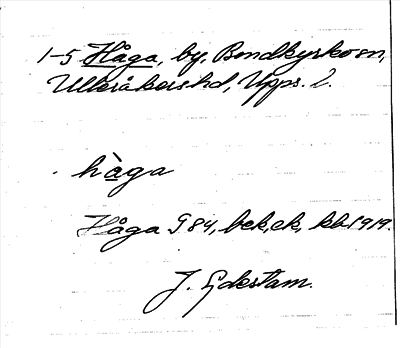 1-5 Håga, by, Bondkyrko sn,
Ulleråkers hd, Upps. l.
hàga
Håga G 84, bek. ek. kbl 1919.
J. Edestam.